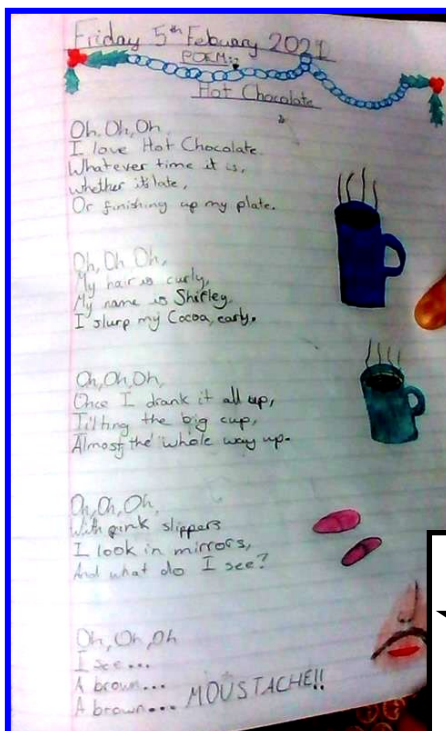 Friday 5th Febuary 2021
POEM:-
Hot Chocolate
Oh, Oh, Oh,
I love Hot Chocolate.
Whatever time it is,
whether it's late,
Or finishing up my plate.
Oh, Oh, Oh,
My hair is curly,
My name is Shirley,
I slurp my Cocoa, early.
Oh, Oh, Oh,
Once I drank it all up,
Tilting the big cup,
Almost the whole way up.
Oh, Oh, Oh,
With pink slippers
I look in mirrors,
And what do I see?
Oh, Oh, Oh
I see...
A brown...
A brown... MOUSTACHE!!